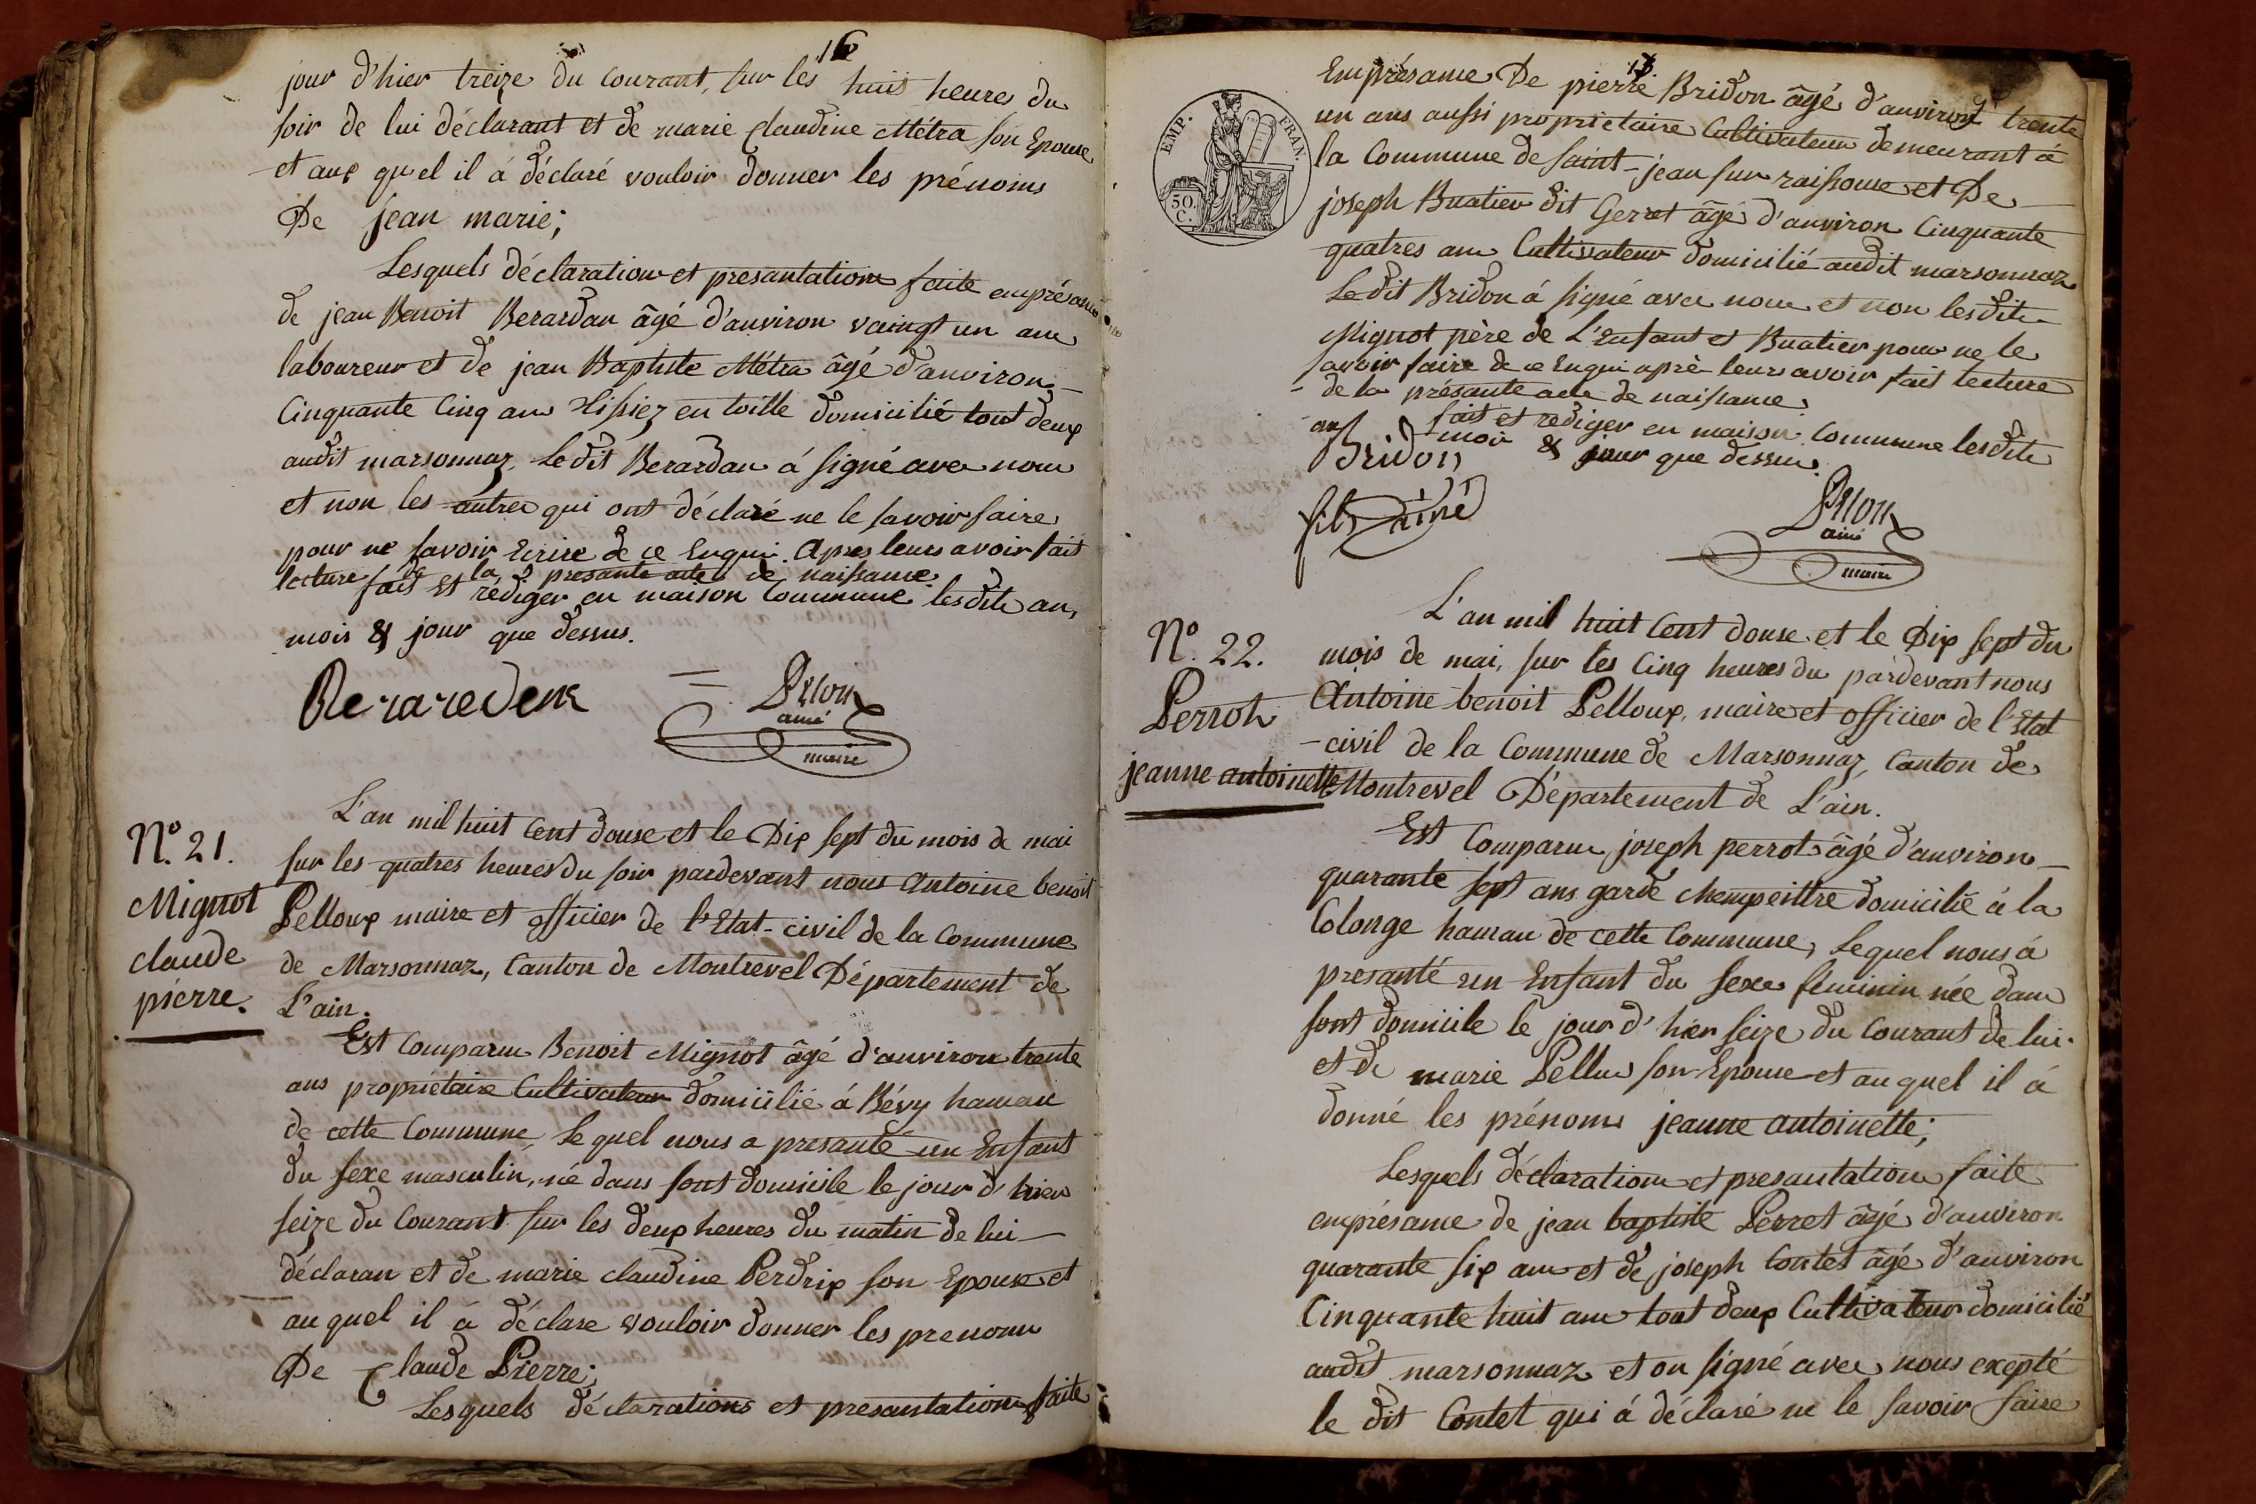 16
jour d'hier treize du courant, sur les huit heures du
soir de lui déclarant et de marie Claudine Métra son Epouse
et aux quel il á déclaré vouloir donner les prénoms
De jean marie;
Lesquels déclaration et presantation faite emprésame
de jean Benoit Berardan âgé d'anviron vaingt un ans
laboureur et de jean Baptiste Métra âgé d'anviron
Cinquante Cinq ans Tissiez en toille domicilié tout deux
audit marsonnaz, Ledit Berardan á signé avec nous
et non les autres qui ont déclaré ne le savoir faire
pour ne savoir Ecrire de ce Enqui. Apres leurs avoir fait
lecture de la presante acte de naissance.
fait et rédiger en maison Commune lesdits an,
mois & jour que dessus.
Beraredenk
Pelloux
ainé
maire
N.º 21.
Mignot
claude
pierre.
L'an mil huit Cent douse et le Dix sept du mois de mai
sur les quatres heures du soir pardevant nous Antoine benoit
Pelloux maire et officier de l'Etat-civil de la Commune
de Marsonnaz, Canton de Montrevel Département de
L'ain.
Est Comparu Benoit Mignot âgé d'anviron trente
ans propriétaire Cultivateur domicilié á Bévy hamau
de cette Commune, Lequel nous a presanté un Enfant
du sexe masculin, né dans sont domicile le jour d'hier
seize du Courant sur les deux heures du matin de lui
déclaran et de marie claudine Perdrix son Epouse et
au quel il á déclare vouloir donner les prenoms
De Claude Pierre;
Lesquels déclarations et presantations faite
17
EMP. FRAN.
50. C.
Emprésame De pierre Bridon âgé d'anviron trente
un ans aussi proprietaire Cultivateur demeurant á
la Commune de Saint-jean sur raissouse et De
joseph Buatier dit Gerret âgé d'anviron Cinquante
quatres ans Cultivateur domicilié audit marsonnaz
Ledit Bridon á signé avec nous et non lesdits
Mignot père de L'Enfant et Buatier pour ne le
savoir faire de ce Enqui aprè leurs avoir fait lecture
de la présante acte de naissance.
fait et rediger en maison Commune lesdits
an moir & jour que dessus.
Bridon
fils ainé
Pelloux
ainé
maire
N.º 22.
Perrot
jeanne antoinette
L'an mil huit Cent douse et le Dix sept du
mois de mai, sur les Cinq heures du pardevant nous
Antoine benoit Pelloux, maire et officier de l'Etat
-civil de la Commune de Marsonnaz, Canton de
Montrevel Département de L'ain.
Est Comparu joseph perrot âgé d'anviron
quarante sept ans garde chempeittre domicilié á la
Colonge hamau de cette Commune, Lequel nous á
presanté un Enfant du sexe feminin née dans
sont domicile le jour d'hier seize du Courant de lui
et de marie Pellus son Epouse et au quel il á
donné les prénoms jeanne antoinette;
Lesquels déclarations et presantations faite
emprésame de jean baptiste Perret âgé d'anviron
quarante six ans et de joseph Contet âgé d'anviron
Cinquante huit ans tout deux Cultivateur domicilié
audit marsonnaz et on signé avec nous exepté
le dit Contet qui á déclaré ne le savoir faire